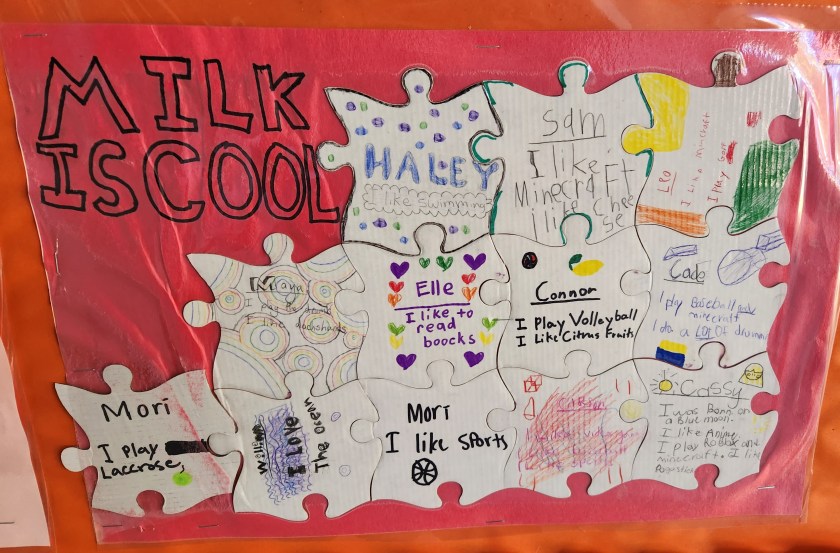 MILK
IS COOL
HALEY
I like swimming
Sam
I like
MinecraFt
I like Chee
se
LEO
I Like Minecraft
I Play
Maya
I like dachshunds
Elle
I like to
read
boocks
Connor
I Play Volleyball
I Like Citrus Fruits
Cade
I play Baseball
minecraft
I do a LOT OF
Mori
I Play
Laccrose,
William
I Love
The Ocean
Mori
I like Sports
Cassy
I was Born on
a Blue moon.
I like Anime
I play Roblox and
minecraft. I like